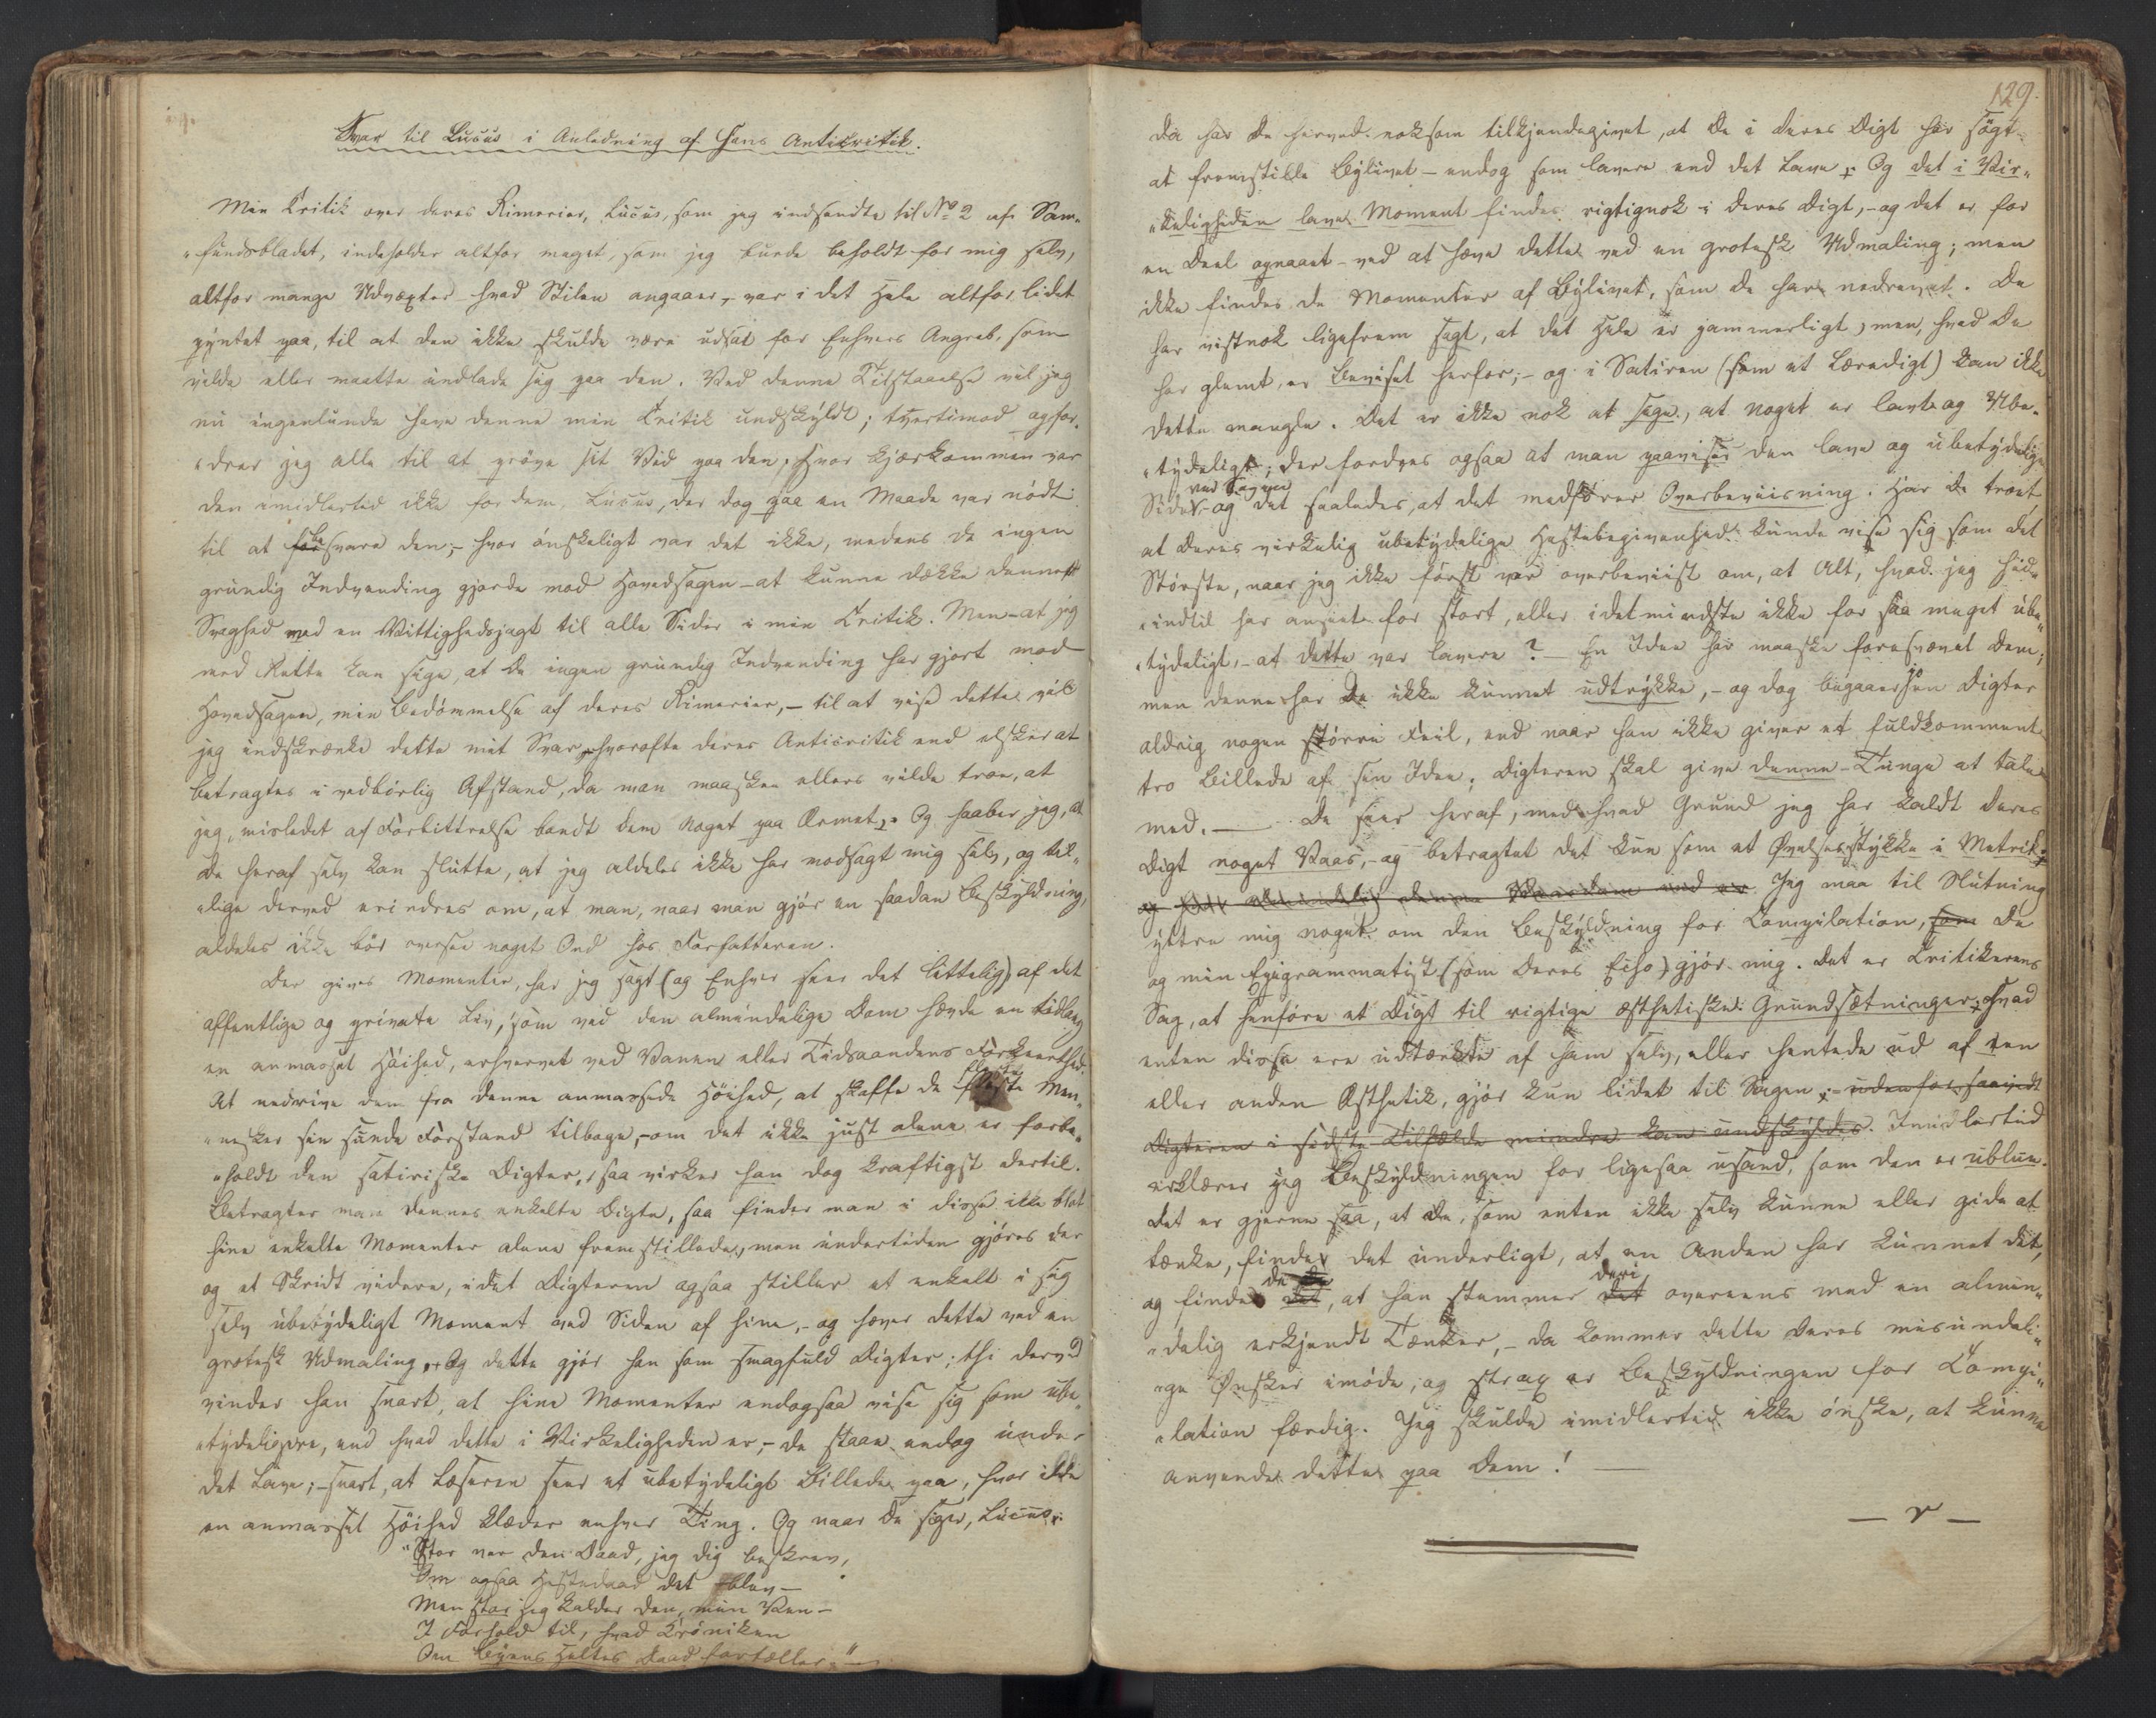 Svar til Lucus i Anledning af Hans Anticritik.
Min Critik over deres Rimerier, Lucus, som jeg indsendte til No 2 af Sam-
"fundsbladet, indeholder altfor meget, som jeg burde beholdt for mig selv,
altfor mange Udvexter hvad Stilen angaaer, – var i det Hele altfor lidet
pyntet paa, til at den ikke skulde være udsat for Enhvers Angreb, som
vilde eller maatte indlade sig paa den. Ved denne Tilstaaelse vil jeg
nu ingenlunde have denne min Critik undskyldt; tvertimod opfor-
"drer jeg alle til at prøve sit Vid paa den. Hvor kjærkommen var
den imidlertid ikke for dem, Lucus, der dog paa en Maade var nødt
til at forsvare den; – hvor ønskeligt var det ikke, medens De ingen
grundig Indvending gjorde mod Hovedsagen – at kunne dække dennes
Svaghed med en Vittighedsjagt til alle Sider i min Critik. Men – at jeg
med Rette kan sige, at De ingen grundig Indvending har gjort mod
Hovedsagen, min Bedømmelse af deres Rimerier, – til at vise dette vil
jeg indskrænke dette mit Svar, hvorofte deres Anticritik end elsker at
betragtes i vedbørlig Afstand, da man maaskee ellers vilde troe, at
jeg, misledet af Forbittrelse bandt dem noget paa Ærmet. Og haaber jeg, at
De heraf selv kan slutte, at jeg aldeles ikke har modsagt mig selv, og til-
"lige derved erindres om, at man, naar man gjør en saadan Beskyldning,
aldeles ikke bør oversee noget Ord hos Forfatteren.
Der gives Momenter, har jeg sagt (og Enhver seer det lettelig) af det
offentlige og private Liv, som ved den almindelige Dom hævde en tidlang
en anmasset Høihed, erhvervet ved Vanen eller Tidsaandens Forkeerthed.
At nedrive dem fra denne anmassede Høihed, at skaffe de fleste Men-
"nesker sin sunde Forstand tilbage, – om det ikke just alene er forbe-
"holdt den satiriske Digter, saa virker han dog kraftigst dertil.
Betragter man dennes enkelte Digte, saa finder man i disse ikke blot
hine enkelte Momenter alene fremstillede, men undertiden gjøres der
og et Skridt videre, idet Digteren ogsaa stiller et enkelt i sig
selv ubetydeligt Moment ved Siden af hine, – og hæver dette ved en
grotesk Udmaling. Og dette gjør han som smagfuld Digter; thi derved
vinder han snart, at hine Momenter endogsaa vise sig som ube-
"tydeligere, end hvad dette i Virkeligheden er, – de staae endog under
det Lave; – snart, at Læseren seer et ubetydeligt Billede paa, hvor ilde
en anmasset Høihed klæder enhver Ting. Og naar De siger, Lucus:
"Stor var den Daad, jeg dig beskrev,
Om ogsaa Hestedaad det blev –
Men stor jeg kalder den, min Ven –
I Forhold til, hvad Krøniken
Om Byens Heltes Daad fortæller." –
129.
da har De herved noksom tilkjendegivet, at De i deres Digt har søgt
at fremstille Bylivet – endog som lavere end det Lave. Og det i Vir-
"keligheden lave Moment findes rigtignok i deres Digt, – og det er for
en Deel opnaaet – ved at hæve dette ved en grotesk Udmaling; men
ikke findes de Momenter af Bylivet, som De har nedrevet. De
har vistnok ligefrem sagt, at det Hele er jammerligt, men, hvad De
har glemt, er Beviset herfor; – og i Satiren (som et Læredigt) kan ikke
dette mangle. Det er ikke nok at sige, at noget er lavt og Ube-
"tydeligt; der fordres ogsaa at man paaviser den lave og ubetydelige
ved Sagen
Side, – og det saaledes, at det medfører Overbeviisning. Har De troet,
at deres virkelig ubetydelige Hestebegivenhed kunde vise sig som det
Største, naar jeg ikke først var overbeviist om, at Alt, hvad jeg hid-
"indtil har anseet for stort, eller idetmindste ikke for saa meget ube-
"tydeligt, – at dette var lavere? – En Idee har maaskee foresvævet dem;
men denne har De ikke kunnet udtrykke, – og dog begaaer jo en Digter
aldrig nogen større Feil, end naar han ikke giver et fuldkomment
tro Billede af sin Idee; Digteren skal give denne – Tunge at tale
med. – De seer heraf, med hvad Grund jeg har kaldt deres
Digt noget Vaas, – og betragtet det kun som et Øvelsesstykke i Metrik.
Jeg maa til Slutning
yttre mig noget om den Beskyldning for Compilation, som De
og min Epigrammatist (som deres Echo) gjør mig. Det er Critikerens
Sag, at henføre et Digt til rigtige æsthetiske Grundsætninger. Hvad
enten disse ere udtænkte af ham selv, eller hentede ud af een
eller anden Æsthetik, gjør kun lidet til Sagen; – udenfor saavidt
Digteren i sidste Tilfælde mindre kan undskyldes. Imidlertid
erklærer jeg Beskyldningen for ligesaa usand, som den er ublue.
Det er gjerne saa, at De, som enten ikke selv kunne eller gide at
tænke, finde det underligt, at en Anden har kunnet det,
og finde de det, at han stemmer deri overeens med en almin-
"delig erkjendt Tænker, – da kommer dette deres misundeli-
"ge Ønsker imøde, og strax er Beskyldningen for Compi-
"lation færdig. Jeg skulde imidlertid ikke ønske, at kunne
anvende dette paa Dem! –
– r –